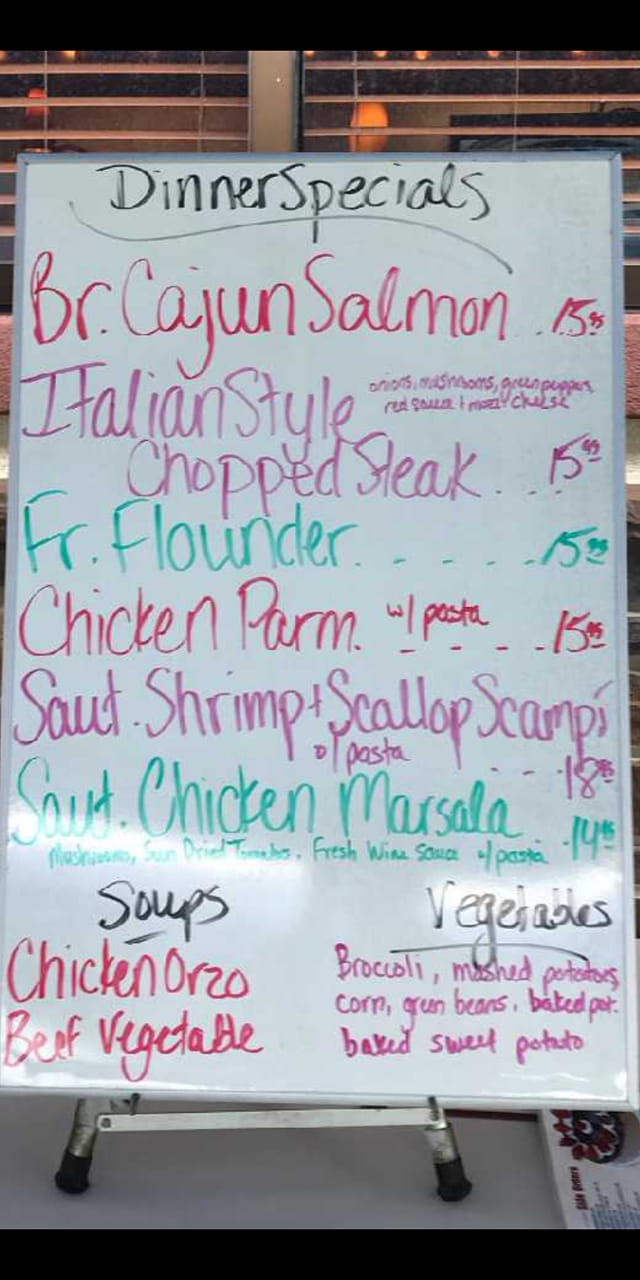 Dinner Specials
Br. Cajun Salmon . . 15.95
Italian Style
onions, mushrooms, green peppers,
red sauce + mozz cheese
Chopped Steak . . . 15
Fr. Flounder. - - - - 15
Chicken Parm. w/ pasta - - - . 15.95
Saut. Shrimp + Scallop Scampi
o/ pasta - - - 18.95
Saut. Chicken Marsala . 14.95
Mushrooms, Sun Dried Tomatoes, Fresh Wine Sauce w/ pasta
Soups
Chicken Orzo
Beef Vegetable
Vegetables
Broccoli, mashed potatoes,
corn, green beans, baked pot.
baked sweet potato
Side Orders